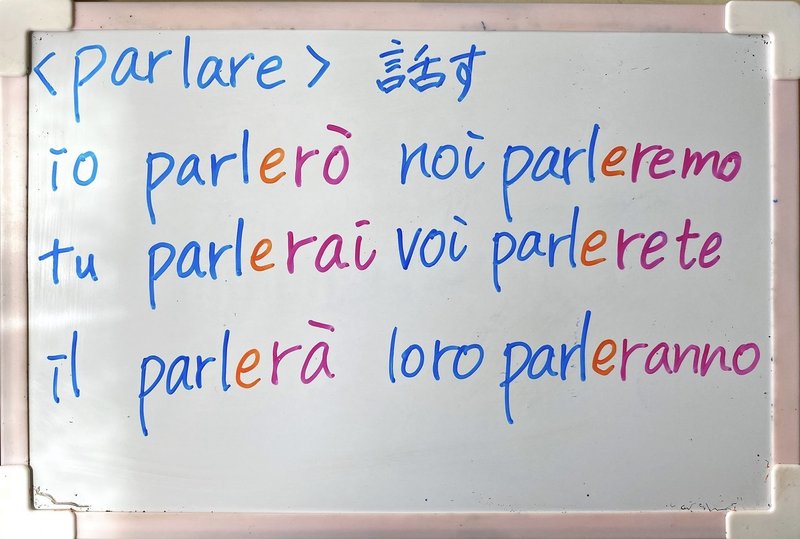 <parlare> 話す
io parlerò noi parleremo
tu parlerai voi parlerete
il parlerà loro parleranno